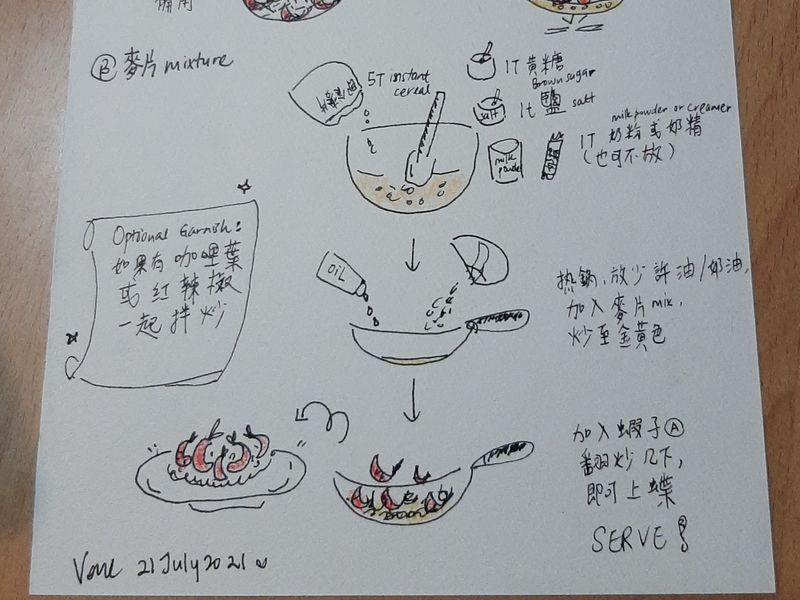 備用
Ⓑ 麥片 mixture
5T instant
cereal
1T 黃糖
Brown sugar
salt
1t 鹽 salt
milk powder or creamer
1T 奶粉或奶精
(也可不放)
milk
powder
Optional Garnish:
如果有咖哩葉
或紅辣椒
一起拌炒
OIL
热鍋,放少許油/奶油,
加入麥片mix,
炒至金黃色
加入蝦子Ⓐ
翻炒几下,
即可上蝶
SERVE!
21 July 2021